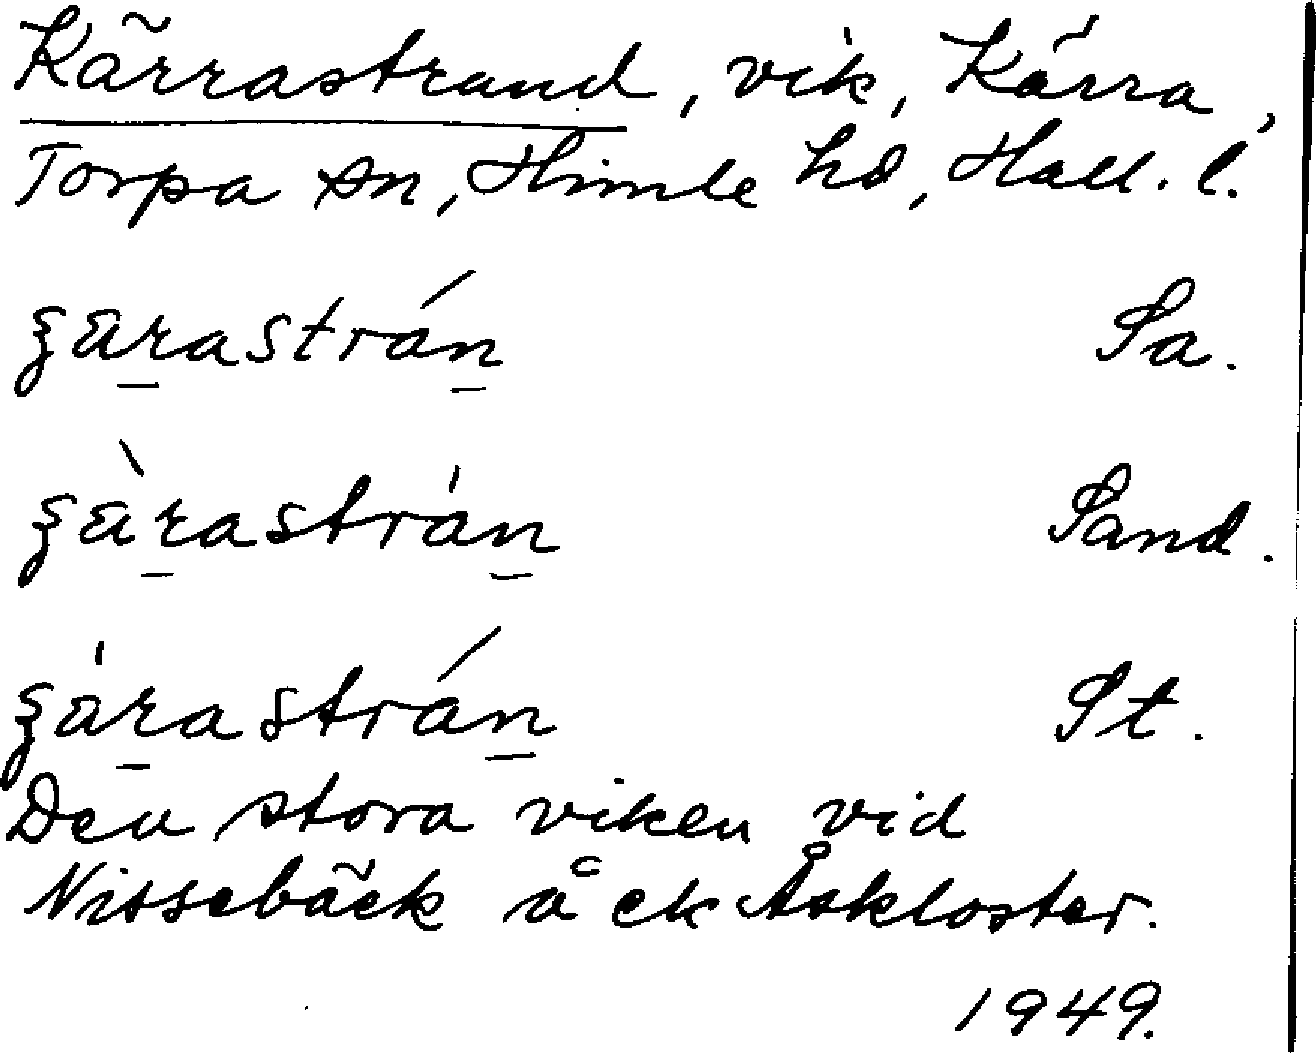 Kärrastrand, vik, Kärra,
Torpa sn, Himle hd, Hall. l.
ʒarastrán Sa.
ʒàrastrán Sand.
ʒárastrán St.
Den stora viken vid
Nissebäck å ek Åskloster.
1949.